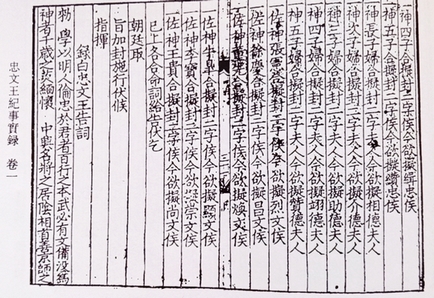 神四子合擬封二字侯今欲擬忠侯
神五子合擬封二字侯今欲擬續忠侯
神長子婦合擬封二字夫人今欲擬相德夫人
神次子婦合擬封二字夫人今欲擬德夫人
神三子婦合擬封二字夫人今欲擬助德夫人
神四子婦合擬封二字夫人今欲擬翊德夫人
神五子婦合擬封二字夫人今欲擬贊德夫人
佐神張憲合擬封二字侯今欲擬烈文侯
佐神徐慶合擬封二字侯今欲擬昌文侯
佐神董先合擬封二字侯今欲擬煥文侯
佐神牛皋合擬封二字侯今欲擬顯文侯
佐神李寶合擬封二字侯今欲擬崇文侯
佐神王貴合擬封二字侯今欲擬尚文侯
已上各合命詞給告伏乞
朝廷取
旨加封施行伏候
指揮
錄白忠文王告詞
勅學以明人倫忠於君者百行之本武必有文備沒為
神者千歲之英緬懷 中興名將之居陰相首善京師之
忠文王紀事實錄 卷一